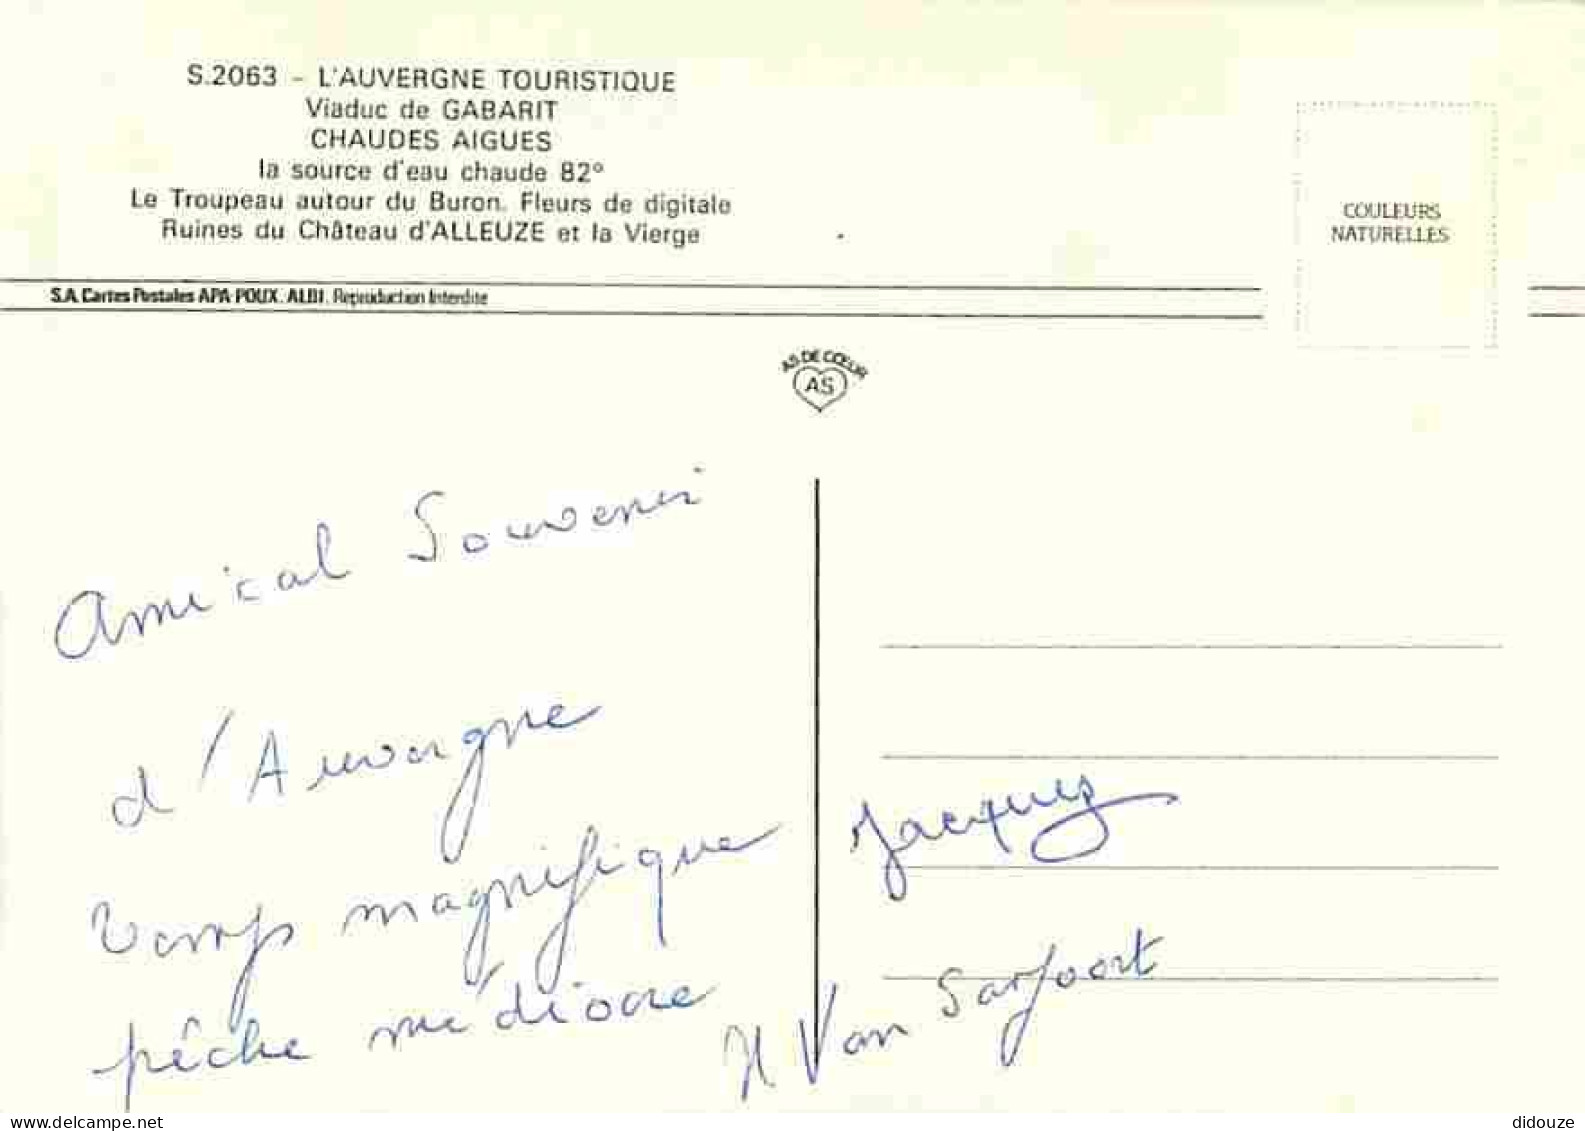 S.2063 - L'AUVERGNE TOURISTIQUE
Viaduc de GABARIT
CHAUDES AIGUES
la source d'eau chaude 82°
Le Troupeau autour du Buron. Fleurs de digitale
Ruines du Château d'ALLEUZE et la Vierge
COULEURS
NATURELLES
S.A. Cartes Postales APA-POUX. ALBI. Reproduction Interdite
AS DE CŒUR
AS
Amical Souvenir
d'Auvergne
Temps magnifique
pêche médiocre
Jacques
H Van Sarfoort
www.delcampe.net
didouze